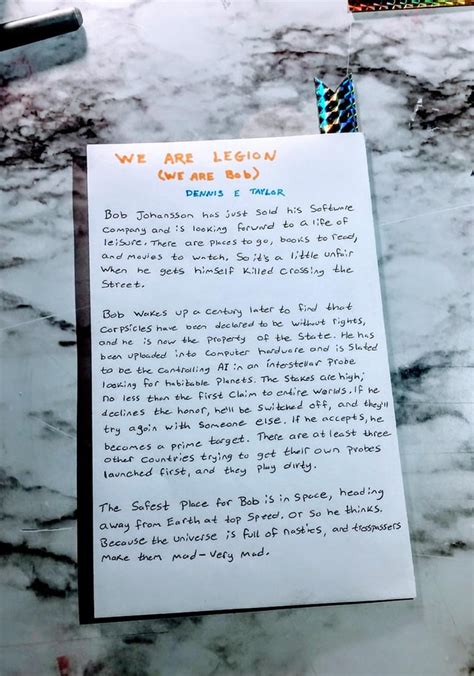 WE ARE LEGION
(WE ARE BOB)
DENNIS E TAYLOR
Bob Johansson has just sold his Software
Company and is looking forward to a life of
leisure. There are places to go, books to read,
and movies to watch. So it's a little unfair
when he gets himself killed crossing the
Street.
Bob wakes up a century later to find that
corpsicles have been declared to be without rights,
and he is now the property of the State. He has
been uploaded into computer hardware and is slated
to be the controlling AI in an interstellar probe
looking for habitable planets. The stakes are high;
no less than the first claim to entire worlds. If he
declines the honor, he'll be switched off, and they'll
try again with someone else. If he accepts, he
becomes a prime target. There are at least three
other countries trying to get their own probes
launched first, and they play dirty.
The Safest Place for Bob is in space, heading
away from Earth at top speed. Or so he thinks.
Because the universe is full of nasties, and trespassers
make them mad - very mad.